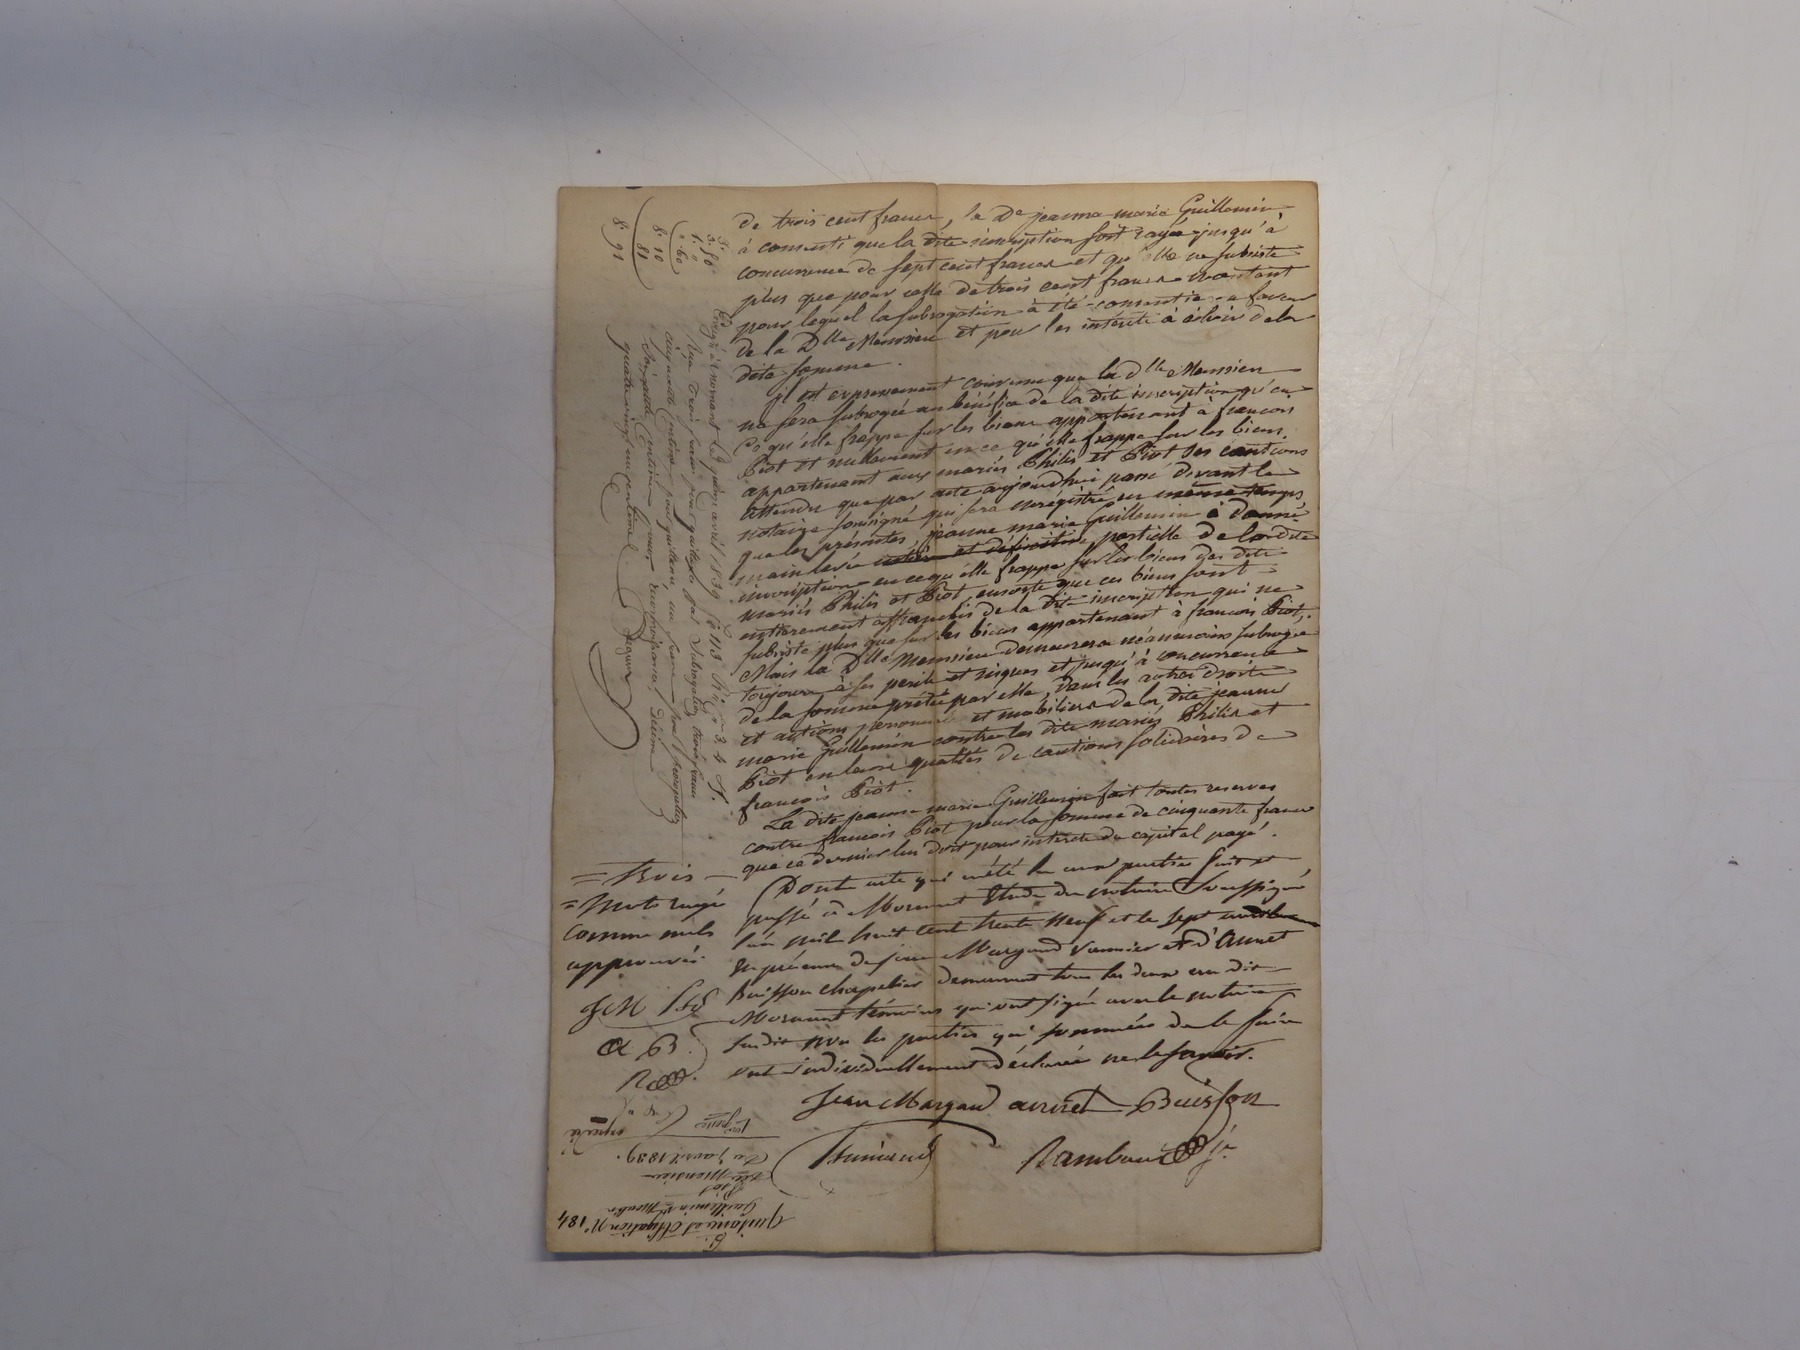 de trois cent francs, la De jeanne marie Guillemin
à consenti que la dite inscription soit rayée jusqu'à
concurrence de sept cent francs et qu'elle ne subsiste
plus que pour celle de trois cent francs montant
pour lequel la subrogation à été consentie a faveur
de la Dlle Monsieu et pour les intérêts à échoir de la
dite somme.
il est expressement convenu que la dlle Monsieu
ne sera subrogée au bénéfice de la dite inscription qu'en
ce qu'elle frappe sur les biens appartenant à francois
Piot et nullement en ce qu'elle frappe sur les biens
appartenant aux mariés Philis et Piot ses cautions
attendu que par acte aujourd'hui passé devant le
notaire soussigné qui sera enregistré en même temps
que les présentes, jeanne marie Guillemin à donné
main levée entière et définitive partielle de la dite
inscription en ce qu'elle frappe sur les biens des dits
mariés Philis et Piot, ensorte que ces biens sont
entierement affranchis de la dite inscription qui ne
subsiste plus que sur les biens appartenant à francois Piot,
Mais la Dlle Monsieu demeurera néanmoins subrogée
toujours à ses perils et risques et jusqu'à concurrence
de la somme prêtée par elle, dans les autres droits
et actions personnels et mobiliers de la dite jeanne
marie Guillemin contre les dits mariés Philis et
Piot en leurs qualités de cautions solidaires de
francois Piot.
La dite jeanne marie Guillemin fait toutes reserves
contre francois Piot pour la somme de cinquante francs
que ce dernier lui doit pour interets du capital payé.
Dont acte qui a été lu aux parties fait et
passé à Mornant Etude du notaire Soussigné
l'an mil huit cent trente neuf et le sept avril
En présence de jean Margand vannier et d'Annet
Buisson chapelier demeurant tous les deux au dit
Mornant témoins qui ont signé avec le notaire
susdit non les parties qui sommées de le faire
ont individuellement déclaré ne le savoir.
Jean Margand annet Buisson
= Trois
= mots rayés
comme nuls
approuvés.
JM
a B.
3. 50
1. "
". 60
8. 10
81
8. 91
Engé à mornant le quinze avril 1839 fo 113
quatre vingt un centimes
Quittance et obligation No 184
Guillemin
Piot
Dlle Monsieu
Du 7 avril 1839.